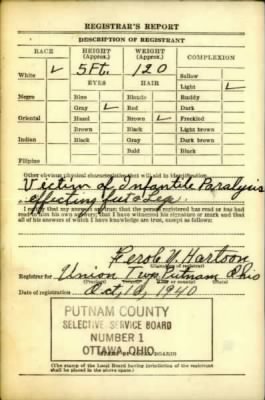 REGISTRAR'S REPORT
DESCRIPTION OF REGISTRANT
RACE HEIGHT (Approx.) WEIGHT (Approx.) COMPLEXION
White ✓ 5 Ft. 120 Sallow
EYES HAIR Light ✓
Negro Blue Blonde Ruddy
Gray ✓ Red Dark
Oriental Hazel Brown ✓ Freckled
Brown Black Light brown
Indian Black Gray Dark brown
Bald Black
Filipino
Other obvious physical characteristics that will aid in identification
Victim of Infantile Paralysis
effecting
I certify that my answers are true; that the person registered has read or has had
read to him his own answers; that I have witnessed his signature or mark and that
all of his answers of which I have knowledge are true, except as follows:
Hartoon
(Signature of registrar)
Registrar for Union Twp. Putnam Ohio
(Precinct) (State)
Date of registration Oct, 16, 1940
PUTNAM COUNTY
SELECTIVE SERVICE BOARD
NUMBER 1
OTTAWA, OHIO
(The stamp of the Local Board having jurisdiction of the registrant
shall be placed in the above space.)